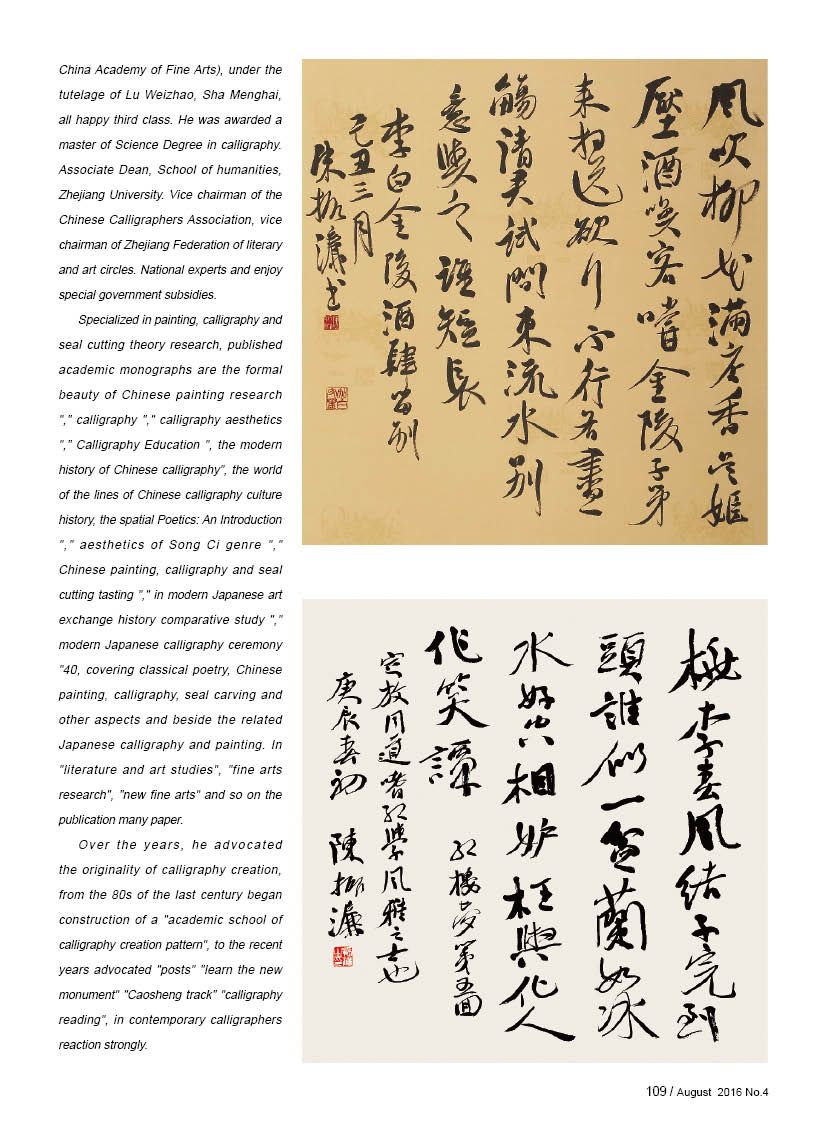 China Academy of Fine Arts), under the
tutelage of Lu Weizhao, Sha Menghai,
all happy third class. He was awarded a
master of Science Degree in calligraphy.
Associate Dean, School of humanities,
Zhejiang University. Vice chairman of the
Chinese Calligraphers Association, vice
chairman of Zhejiang Federation of literary
and art circles. National experts and enjoy
special government subsidies.
Specialized in painting, calligraphy and
seal cutting theory research, published
academic monographs are the formal
beauty of Chinese painting research
"," calligraphy "," calligraphy aesthetics
"," Calligraphy Education ", the modern
history of Chinese calligraphy", the world
of the lines of Chinese calligraphy culture
history, the spatial Poetics: An Introduction
"," aesthetics of Song Ci genre ","
Chinese painting, calligraphy and seal
cutting tasting "," in modern Japanese art
exchange history comparative study ","
modern Japanese calligraphy ceremony
"40, covering classical poetry, Chinese
painting, calligraphy, seal carving and
other aspects and beside the related
Japanese calligraphy and painting. In
"literature and art studies", "fine arts
research", "new fine arts" and so on the
publication many paper.
Over the years, he advocated
the originality of calligraphy creation,
from the 80s of the last century began
construction of a "academic school of
calligraphy creation pattern", to the recent
years advocated "posts" "learn the new
monument" "Caosheng track" "calligraphy
reading", in contemporary calligraphers
reaction strongly.
風吹柳花滿店香吳姬
壓酒喚客嘗金陵子弟
來相送欲行不行各盡
觴請君試問東流水別
意與之誰短長
李白金陵酒肆留別
己丑三月
陳振濂書
桃李春風結子完到
頭誰似一盆蘭如冰
水好空相妒枉與他人
作笑譚 紅樓夢第五回
定放同道嗜紅學風雅之士也
庚辰春初 陳振濂
109 / August 2016 No.4